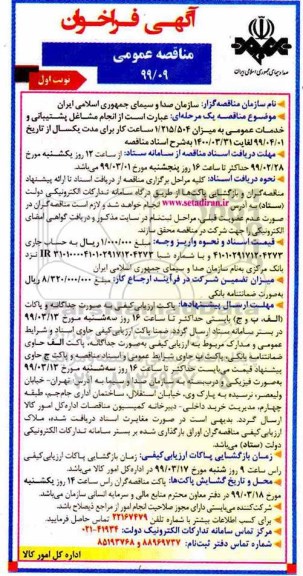 آگهی فراخوان
مناقصه عمومی
۹۹/۰۹
نوبت اول
صدا و سیمای جمهوری اسلامی ایران
نام سازمان مناقصه‌گزار: سازمان صدا و سیمای جمهوری اسلامی ایران
موضوع مناقصه یک مرحله‌ای: عبارت است از انجام مشاغل پشتیبانی و
خدمات عمومی به میزان ۱/۲۱۵/۵۰۴ ساعت کار برای مدت یکسال از تاریخ
۹۹/۰۴/۰۱ لغایت ۱۴۰۰/۰۳/۳۱ به‌شرح اسناد مناقصه
مهلت دریافت اسناد مناقصه از سامانه ستاد: از ساعت ۱۲ روز یکشنبه مورخ
۹۹/۰۲/۲۸ حداکثر تا ساعت ۱۶ روز پنجشنبه مورخ ۹۹/۰۳/۰۱ می‌باشد.
نحوه دریافت اسناد: کلیه مراحل برگزاری مناقصه از دریافت اسناد تا ارائه پیشنهاد
مناقصه‌گران و بازگشایی پاکت‌ها از طریق درگاه سامانه تدارکات الکترونیکی دولت
(ستاد) به آدرس www.setadiran.ir انجام خواهد شد و لازم است مناقصه‌گران در
صورت عدم عضویت قبلی، مراحل ثبت‌نام در سایت مذکور و دریافت گواهی امضای
الکترونیکی را جهت شرکت در مناقصه محقق سازند.
قیمت اسناد و نحوه واریز وجه: مبلغ ۱/۰۰۰/۰۰۰ ریال به حساب جاری
بانک مرکزی به‌نام سازمان صدا و سیمای جمهوری اسلامی ایران
میزان تضمین شرکت در فرآیند ارجاع کار: مبلغ ۸/۳۲۰/۰۰۰/۰۰۰ ریال می‌باشد
به‌صورت ضمانتنامه بانکی
مهلت ارسال پیشنهادها: پاکت ارزیابی کیفی به صورت جداگانه و پاکات
(الف، ب و ج) می‌بایست حداکثر تا ساعت ۱۶ روز سه‌شنبه مورخ ۹۹/۰۳/۱۳
در بستر سامانه ستاد ارسال گردد. ضمنا پاکت ارزیابی کیفی حاوی اسناد و شرایط
عمومی و مدارک مربوط به ارزیابی کیفی به‌صورت جداگانه، پاکت الف حاوی
ضمانتنامه بانکی، پاکت ب حاوی شرایط عمومی و اسناد مناقصه و پاکت ج حاوی
پیشنهاد قیمت می‌بایست حداکثر تا ساعت ۱۶ روز سه‌شنبه مورخ ۹۹/۰۳/۱۳
ولیعصر، نرسیده به پارک وی، خیابان استقلال، ساختمان اداری جام‌جم، طبقه
چهارم، مدیریت خرید داخلی - دبیرخانه کمیسیون مناقصات اداره‌کل امور کالا
ارسال گردد. بدیهی است در صورت مغایرت اسناد دریافت شده، ملاک
ارزیابی کیفی مناقصه‌گران اوراق بارگذاری شده بر بستر سامانه تدارکات الکترونیکی
دولت (ستاد) می‌باشد.
زمان بازگشایی پاکات ارزیابی کیفی: زمان بازگشایی پاکات ارزیابی کیفی
راس ساعت ۹ روز شنبه مورخ ۹۹/۰۳/۱۷ در اداره‌کل امور کالا می‌باشد.
محل و تاریخ گشایش پاکت‌ها: پاکت مناقصه‌گران راس ساعت ۱۴ روز یکشنبه
مورخ ۹۹/۰۳/۱۸ در دفتر معاون محترم منابع مالی و سرمایه انسانی سازمان می‌باشد.
شرکت‌کننده می‌بایستی دارای مجوز صلاحیت انجام امور از مراجع ذیصلاح باشد.
برای کسب اطلاعات بیشتر با شماره تلفن ۲۲۱۶۷۴۷۹ تماس حاصل فرمایید.
مرکز تماس سامانه تدارکات الکترونیک دولت: ۴۱۹۳۴-۰۲۱
شماره تماس دفتر ثبت‌نام: ۸۸۹۶۹۷۳۷ و ۸۵۱۹۳۷۶۸
اداره کل امور کالا